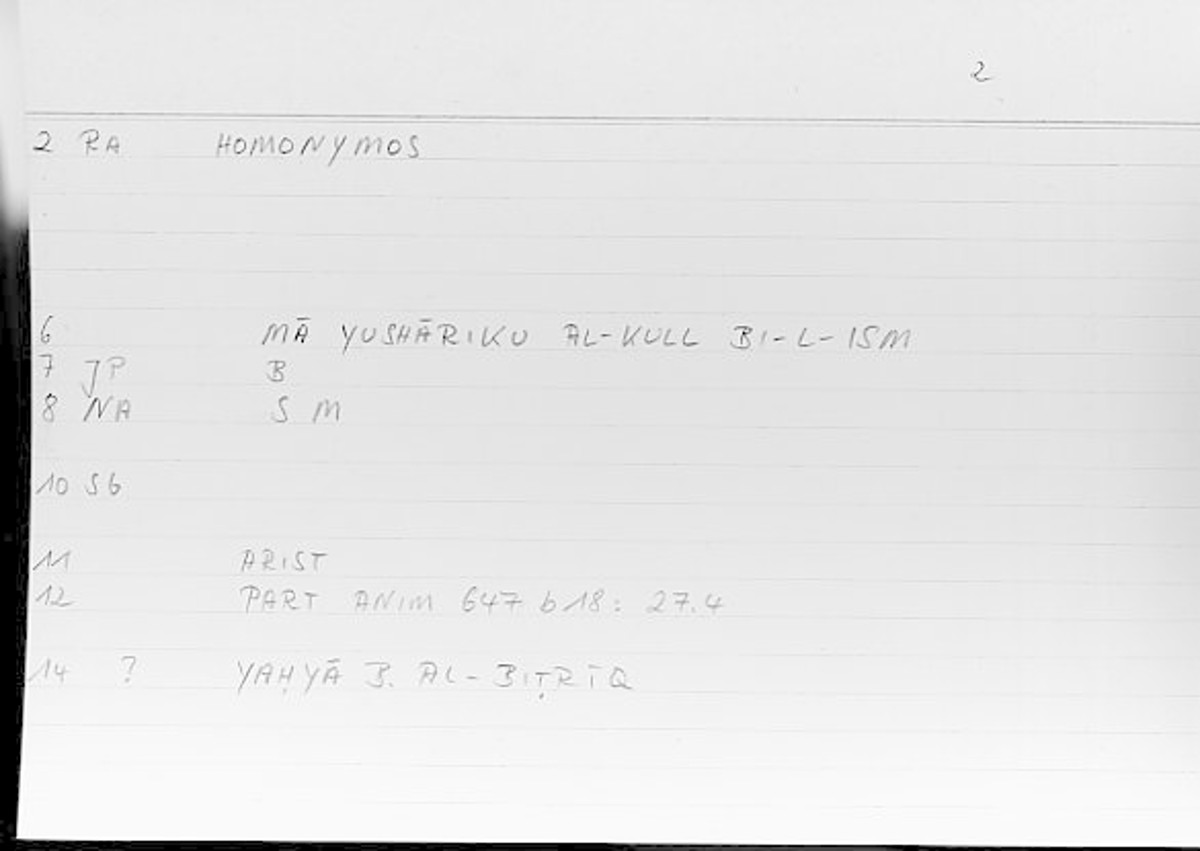 2
2 RA HOMONYMOS
6 MĀ YUSHĀRIKU AL-KULL BI-L-ISM
7 JP B
8 NA S M
10 S6
11 ARIST
12 PART ANIM 647 b18: 27.4
14 ? YAḤYĀ B. AL-BIṬRĪQ